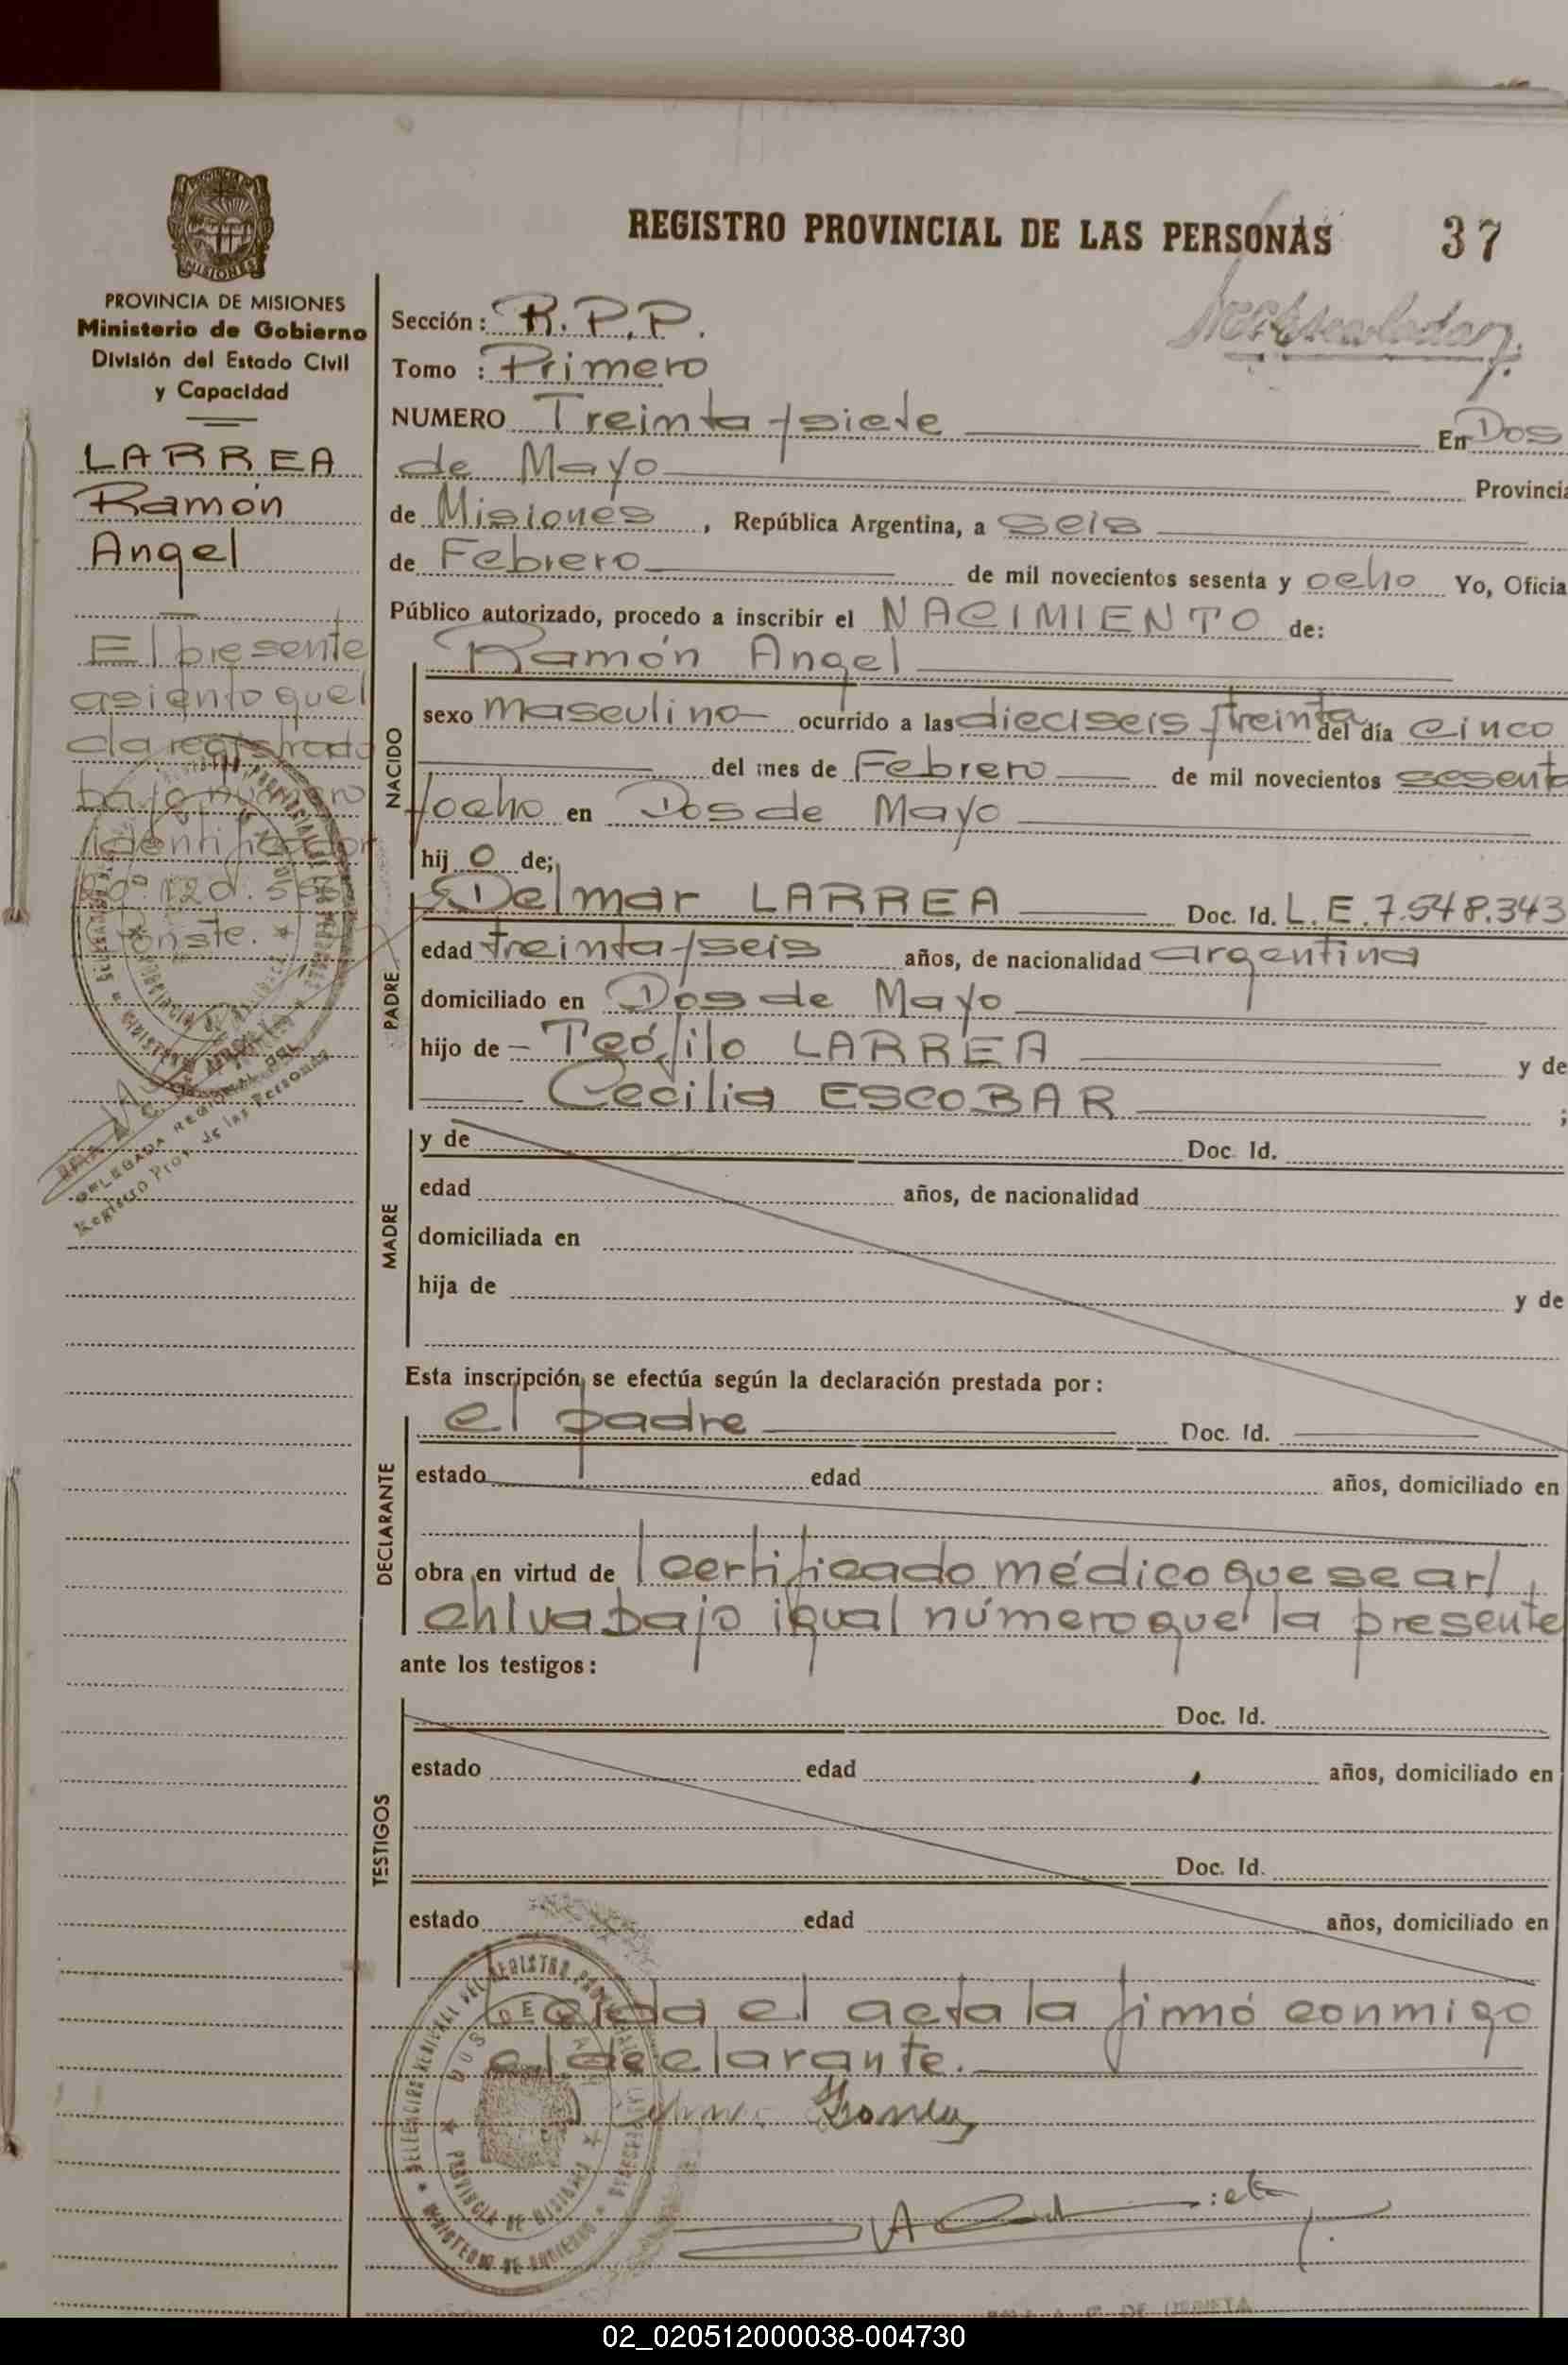 REGISTRO PROVINCIAL DE LAS PERSONAS 37
PROVINCIA DE MISIONES
Ministerio de Gobierno
División del Estado Civil
y Capacidad
LARREA
Ramón
Angel
El presente
asiento que
da registrado
bajo número
identificador
Conste.
Sección: R.P.P.
Tomo: Primero
NUMERO Treinta y siete En Dos
de Mayo Provincia
de Misiones, República Argentina, a seis
de Febrero de mil novecientos sesenta y ocho Yo, Oficia
Público autorizado, procedo a inscribir el NACIMIENTO de:
NACIDO
Ramón Angel
sexo masculino ocurrido a las dieciseis y treinta del día cinco
del mes de Febrero de mil novecientos sesenta
y ocho en Dos de Mayo
hijo de;
PADRE
Delmar LARREA Doc. Id. L.E. 7.548.343
edad treinta y seis años, de nacionalidad argentina
domiciliado en Dos de Mayo
hijo de - Teófilo LARREA y de
Cecilia ESCOBAR ;
MADRE
y de Doc. Id.
edad años, de nacionalidad
domiciliada en
hija de y de
Esta inscripción se efectúa según la declaración prestada por:
DECLARANTE
el padre Doc. Id.
estado edad años, domiciliado en
obra en virtud de l certificado médico que se ar/
chiva bajo igual número que la presente
ante los testigos:
TESTIGOS
Doc. Id.
estado edad años, domiciliado en
Doc. Id.
estado edad años, domiciliado en
Leida el acta la firmó conmigo
el declarante.
DELEGADA REGIONAL
Registro Prov. de las Personas
PROVINCIA DE MISIONES
MINISTERIO DE GOBIERNO
02_020512000038-004730